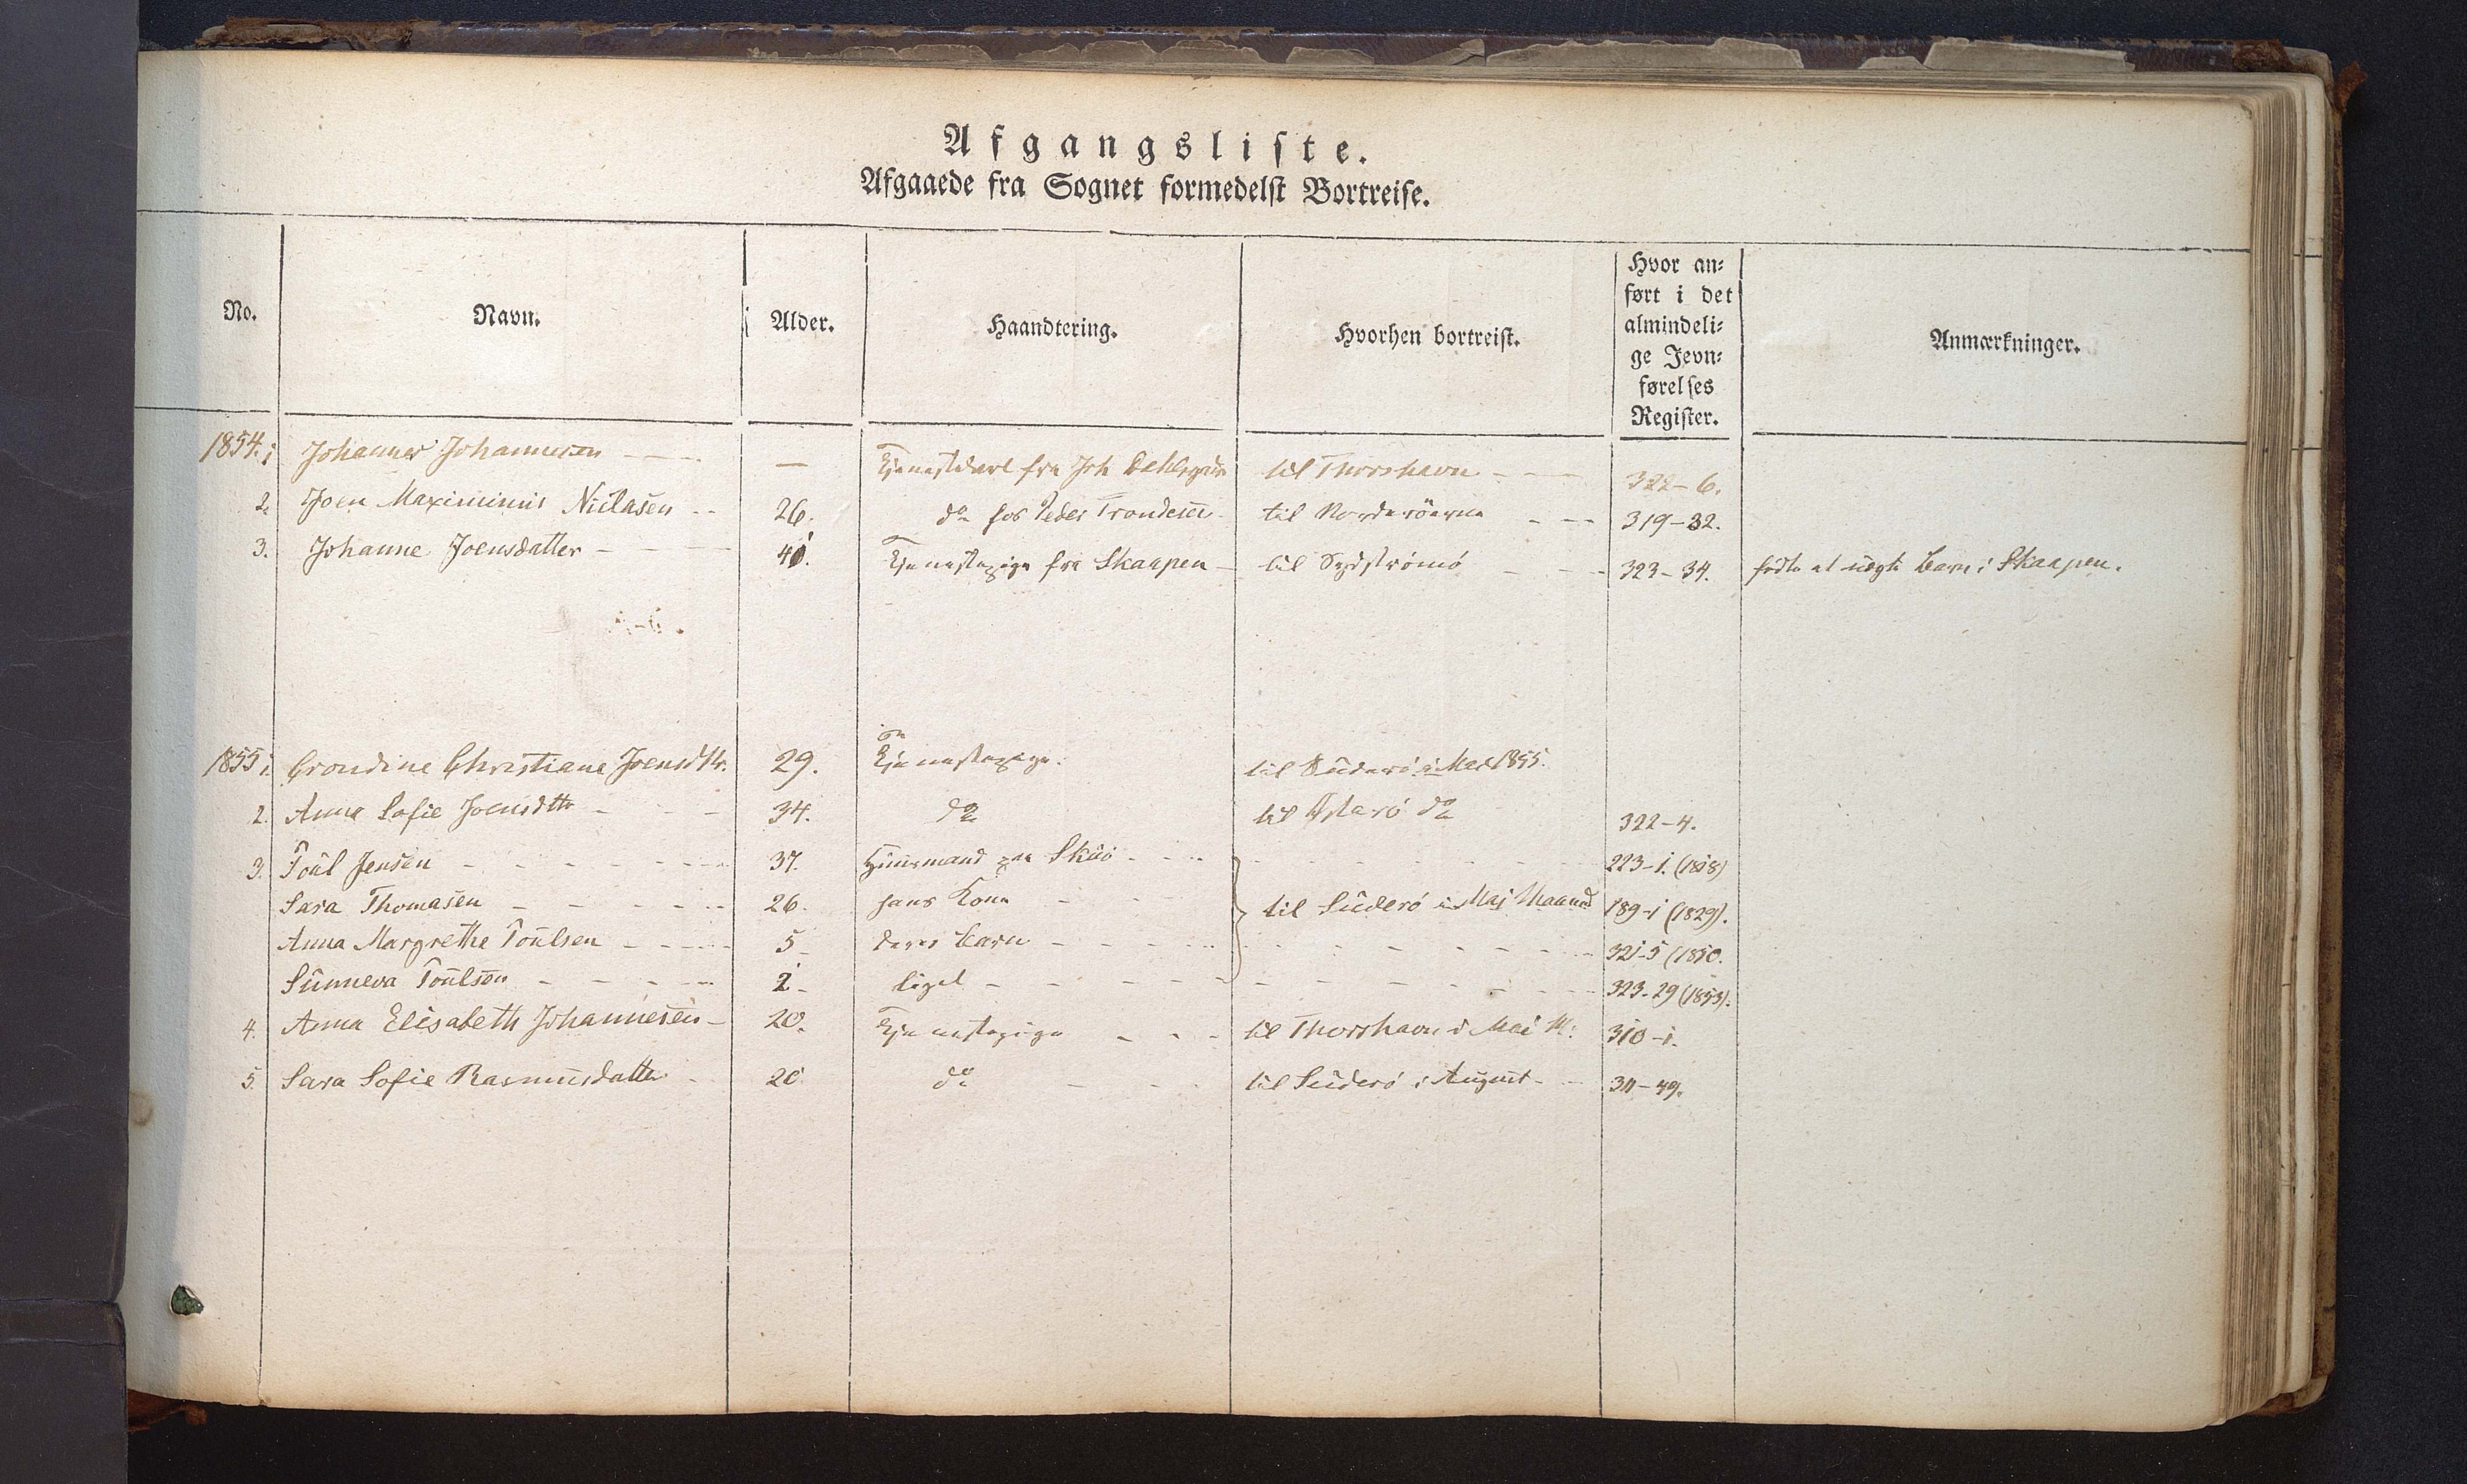 Afgangsliste.
Afgaaede fra Sognet formedelst Bortreise.
No. Navn. Alder. Haandtering. Hvorhen bortreist. Hvor an= ført i det almindeli= ge Jevn= førelses Register. Anmærkninger.
1854. 1 Johannes Johannesen — Tjenestekarl fra Joh til Thorshavn 322-6.
2. Joen Maximinus Niclasen 26. do hos Peder Trondesen til Norderöerne 319-32.
3. Johanne Joensdatter 40. Tjenestepige fra Skaapen til Sydströmö 323-34. födte et uægte Barn i Skaapen.
1855 1. Christiane Joensdtr. 29. Tjenestepige. til Süderö i Mai 1855.
2. Anna Sofie Joensdttr 34. do til do 322-4.
3. Poül Jensen 37. Huusmand paa Skuö 223-1. (1818)
Sara Thomasen 26. hans Kone til Süderö i Maj Maaned 189-1 (1829).
Anna Margrethe Poülsen 5 deres Barn 321-5 (1850.
Sünneva Poülsen 2 ligel 323-29 (1853).
4. Anna Elisabeth Johannesen 20. Tjenestepige til Thorshavn i Mai M: 310-1.
5. Sara Sofie Rasmusdatter 20 do til Süderö i August 311-49.